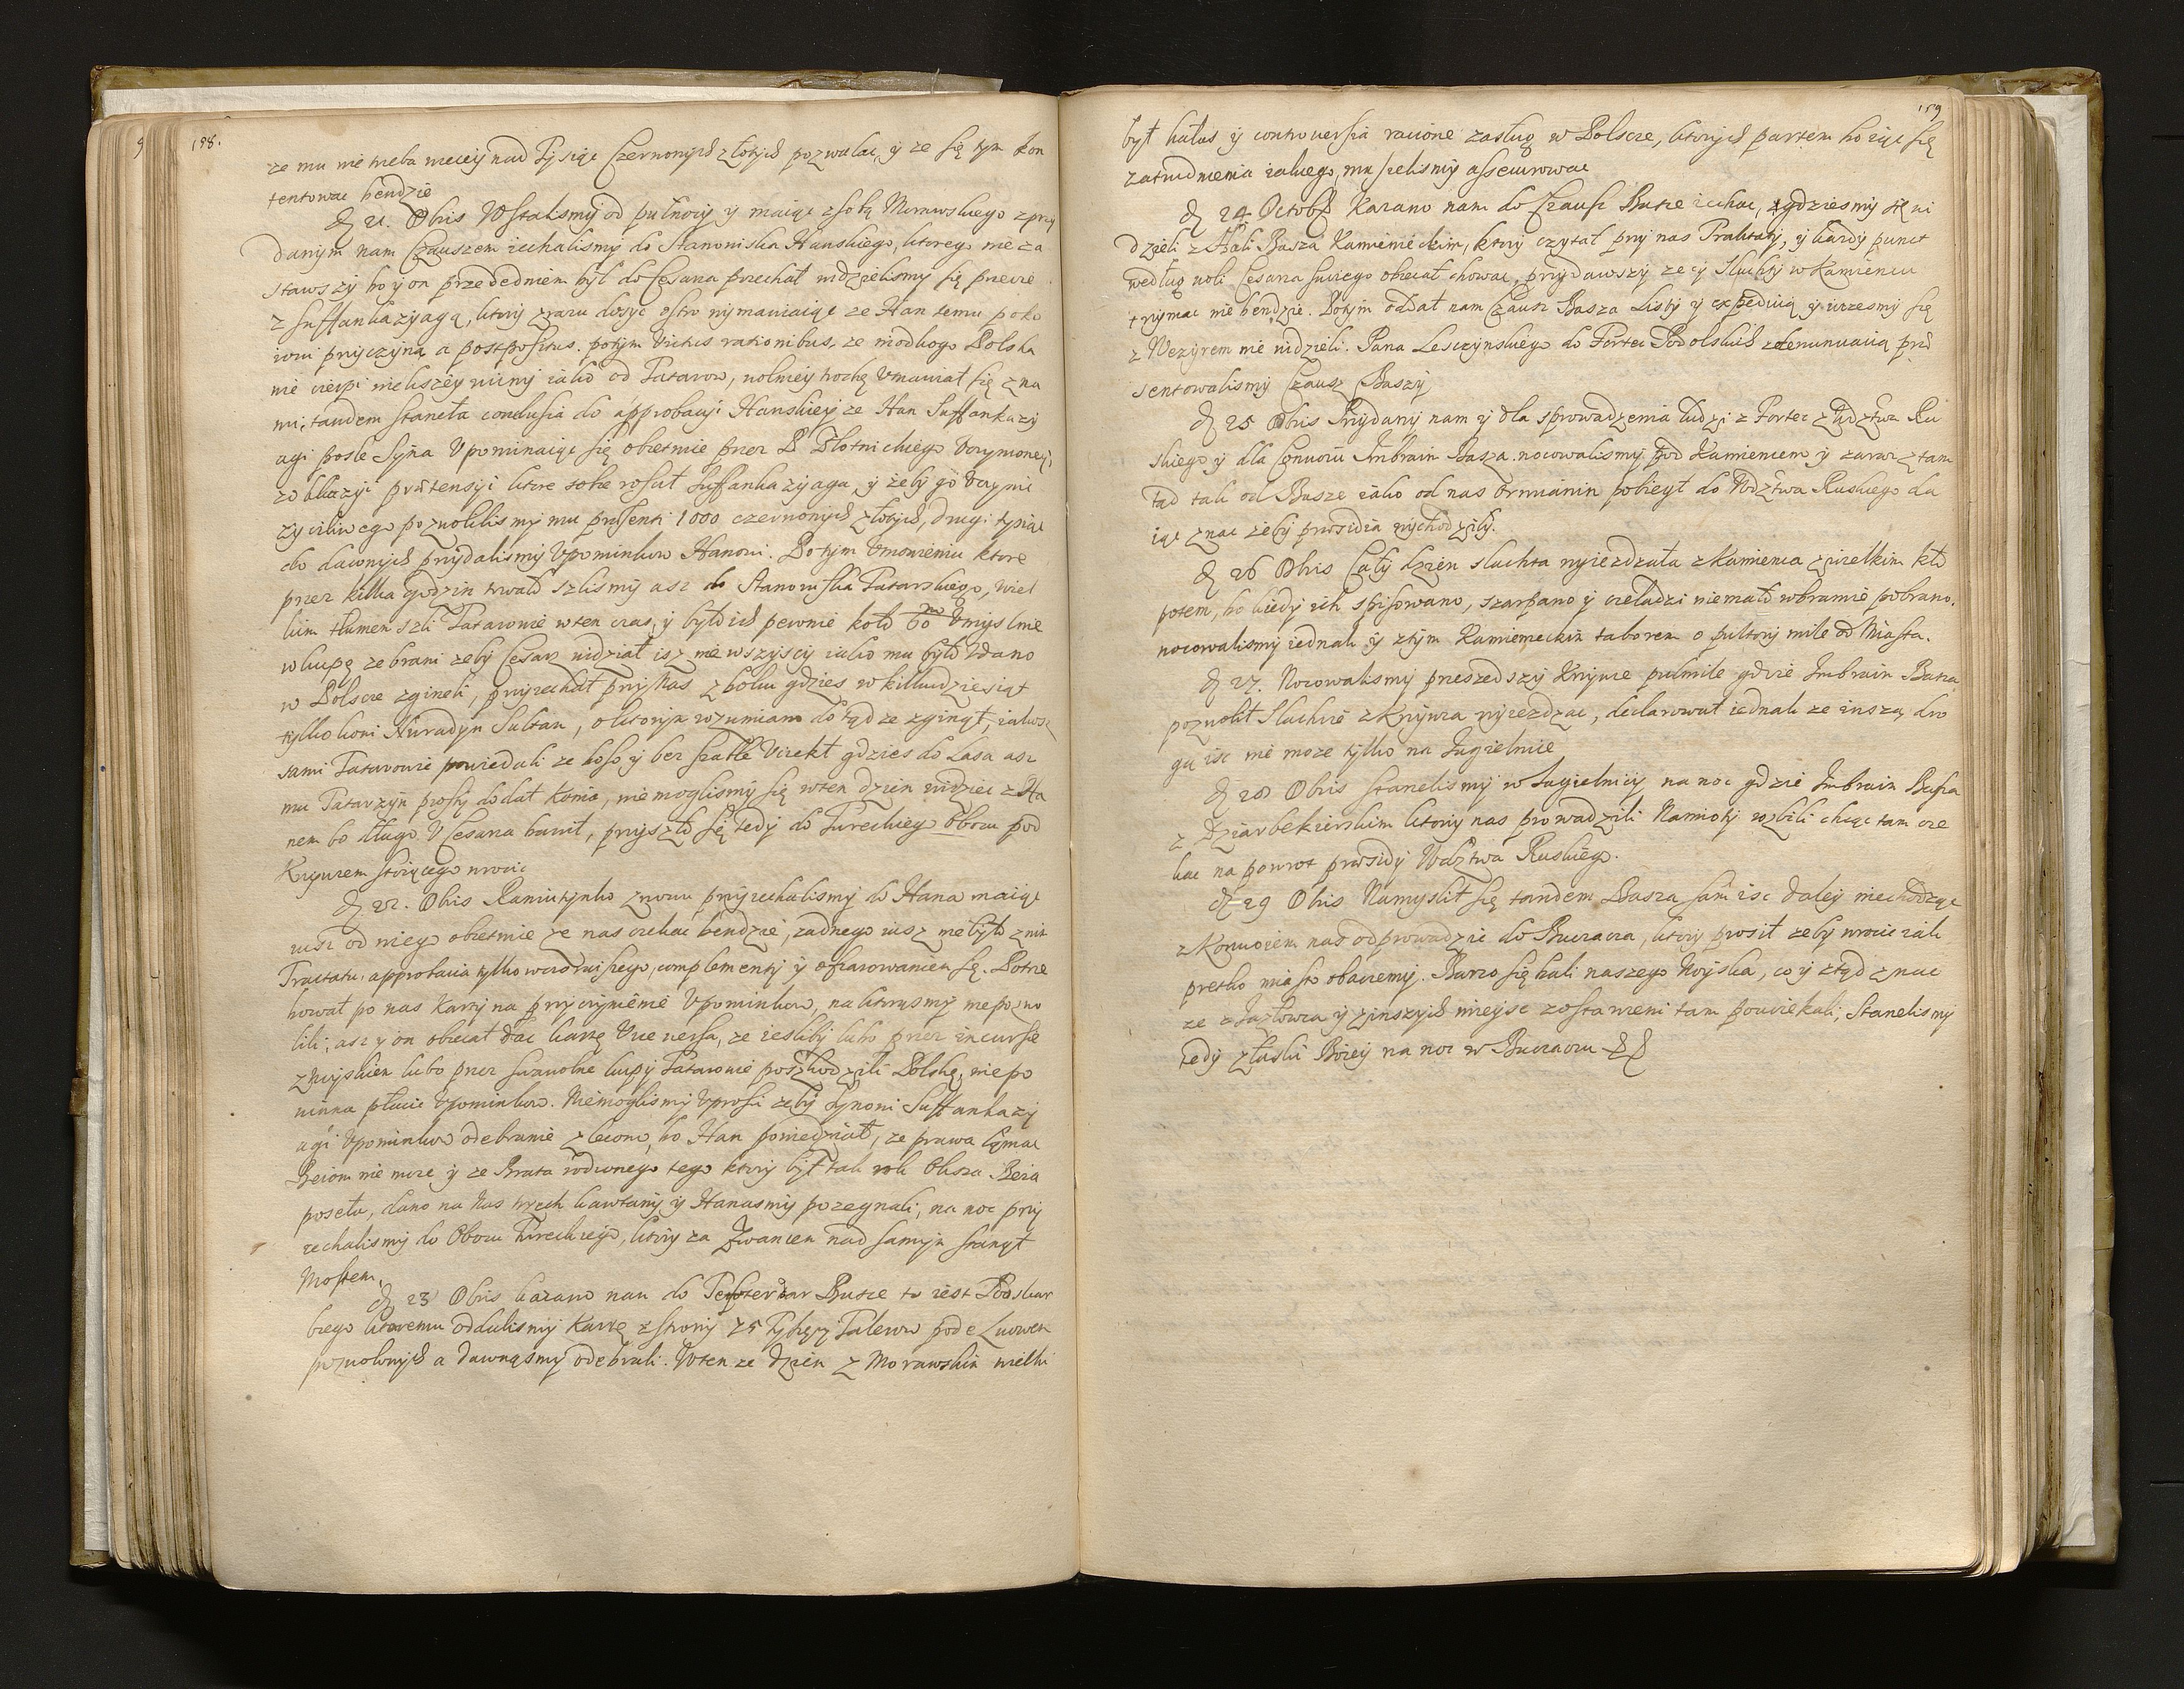 158.
ze mu nie treba wieceÿ nad Tysiąc Czerwonÿch złotÿch pozwalac, ÿ ze się tym kon
tentowac bendzie
d 21. 8bris Wstalismÿ od pułnocÿ ÿ maiąc z sobą Morawskiego z prÿ
danÿm nam Czauszem iechalismÿ do Stanowiska Hanskiego, ktorego nie za
stawszÿ bo ÿ on przededniem bÿł do Cesarza
z Suffankazÿ agą, ktorÿ zrazu dosyc ostro wymawiaiąc ze Han temu poko
iowi prÿczÿną a postpositus. potÿm victus rationibus, ze niodkogo Polska
nie cierpi wiekszeÿ winÿ iako od Tatarow, wolnieÿ trochę vmawiał się z na
mi, tandem staneła conclusia do approbacÿi Hanskieÿ ze Han Suffankazÿ
agi posle Sÿna Vpominaiąc się obietnic przez P Złotnickiego vczÿnioneÿ,
z okkazÿi prætensÿi ktore sobie roscił Suffankazÿ aga, ÿ zebÿ go vczÿnic
zÿczliwego pozwolilismÿ mu præsenti 1000 czerwonÿch złotÿch, drugi tysiąc
do dawnÿch prÿdalismÿ Vpominkow Hanowi. Po tÿm vmowieniu ktore
przez kilka godzin trwało szlismÿ asz do Stanowiska Tatarskiego, wiel
kim tłumem szli Tatarowie w ten czas, ÿ bÿło ich pewnie koło 60 vmÿslnie
w kupę zebrani zebÿ Cesarz widział isz nie wszÿscÿ iako mu bÿło vdano
w Polscze zgineli, prÿiechał prÿ Nas z boku gdzies w kilkudziesiąt
tÿlko koni Nuradÿn Sultan, o ktorÿm rozumiano dotąd ze zginął, iakosz
sami Tatarowie powiedali ze boso ÿ bez szable vciekł gdzies do Lasa asz
mu Tatarzÿn prostÿ dodał konia, nie moglismÿ się w ten dzien widziec z Ha
nem bo długo V Cesarza bawił, prÿszło się tedÿ do Tureckiego Obozu pod
Krÿwzem stoiącego wrocic
d 22. 8bris Raniutynko znowu prÿiechalismÿ do Hana maiąc
iusz od niego obietnic ze nas czekac bendzie, zadnego iusz nie bÿło z nim
Tractatu. approbacia tÿlko wczoraiszego, complementÿ ÿ ofiarowaniem się. Potrze
bowal po nas Kartÿ na prÿczÿnienie Vpominkow, na ktorąsmÿ nie pozwo
lili, asz ÿ on obiecał dac kartę vice versa, ze iesliby lubo przez incursie
z woÿskiem lubo przez swawolne kupÿ Tatarowie poszkodzili Polskę, nie po
winna płacic Vpominkow. Niemoglismÿ Vprosic zebÿ Sÿnowi Suffankazÿ
agi Vpominkow odebranie zlecono, bo Han powiedział, ze prawa łamac
Beiom nie moze ÿ ze Brata rodzonego tego ktorÿ bÿł tak rok Oksza Beia
poseła, dano na Nas trzech kawtanÿ ÿ Hanasmÿ pozegnali, na noc prÿ
iechalismÿ do Obozu Tureckiego, ktorÿ za Zwancem nad samÿm stanął
Mostem,
d 23 8bris kazano nam do Tefterdar Basze to iest Podskar
biego ktoremu oddalismÿ Kartę z stronÿ 25 Tysięcÿ Talerow pode Lwowem
pozwolonÿch a dawnąsmÿ odebrali. W ten ze dzien z Morawskim wielki
159
bÿł hałas ÿ controversia racione zasług w Polscze, ktorÿch partem boiąc się
zatrudnienia iakiego, musielismÿ assecurowac
d 24 Octobr Kazano nam do Czausz Basze iechac, gdziesmÿ się wi
dzieli z Hali Basza Kamienieckim, ktorÿ czÿtał prÿ nas Praktatÿ, ÿ kazdÿ punct
według woli Cesarza swoiego obiecał chowac, prÿdawszÿ ze ÿ Szlachtÿ w Kamiencu
trzymac nie bendzie. Potÿm oddał nam Czausz Basza Listÿ ÿ expedicią ÿ iuzesmÿ się
z Wezÿrem nie widzieli. Pana Lesczÿnskiego do Fortec Podolskich z denunciacią præ
sentowalismÿ Czausz Baszÿ
d 25 8bris Prÿdanÿ nam ÿ dla sprowadzenia ludzi z Fortec z Wdztwa Ru
skiego ÿ dla Convoiu Imbraim Basza. nocowalismÿ pod Kamiencem ÿ zaraz z tam
tąd tak od Basze iako od nas Ormianin pobiegł do Wdztwa Ruskiego da
iąc znac zebÿ præsidia wÿchodziłÿ.
d 26 8bris Całÿ dzien slachta wÿiezdzała z Kamienca z wielkim kło
potem, bo kiedÿ ich spisowano, szarpano ÿ czeladzi niemało w bramie pobrano.
nocowalismÿ iednak ÿ z tÿm Kamienieckim taborem o pultorÿ mile od Miasta.
d 27. Nocowalismÿ przeszedszÿ Krÿwcze pulmile gdzie Imbraim Basza
pozwolił Slachcie z Krÿwcza wÿiezdzac, declarował iednak ze inszą dro
gą isc nie moze tÿlko na Iagielnice
d 28 8bris Stanelismÿ w Iagielnicÿ na noc gdzie Imbraim Basza
z Dziarbekierskim ktorzÿ nas prowadzili Namiotÿ rozbili chcąc tam cze
kac na powrot præsidÿ Wdztwa Ruskiego.
d 29 8bris Namyslił się tandem Basza sam isc daleÿ niechodząc
z Konvoiem nas odprowadzic do Buczacza, ktorÿ prosił zebÿ wrocic iak
pretko miasto obaczemÿ. Barzo się bali naszego Woÿska, co ÿ ztąd znac
ze z Iazłowca ÿ z inszÿch mieÿsc zostawieni tam pouciekali, Stanelismÿ
tedÿ z łaski Bozeÿ na noc w Buczaczu